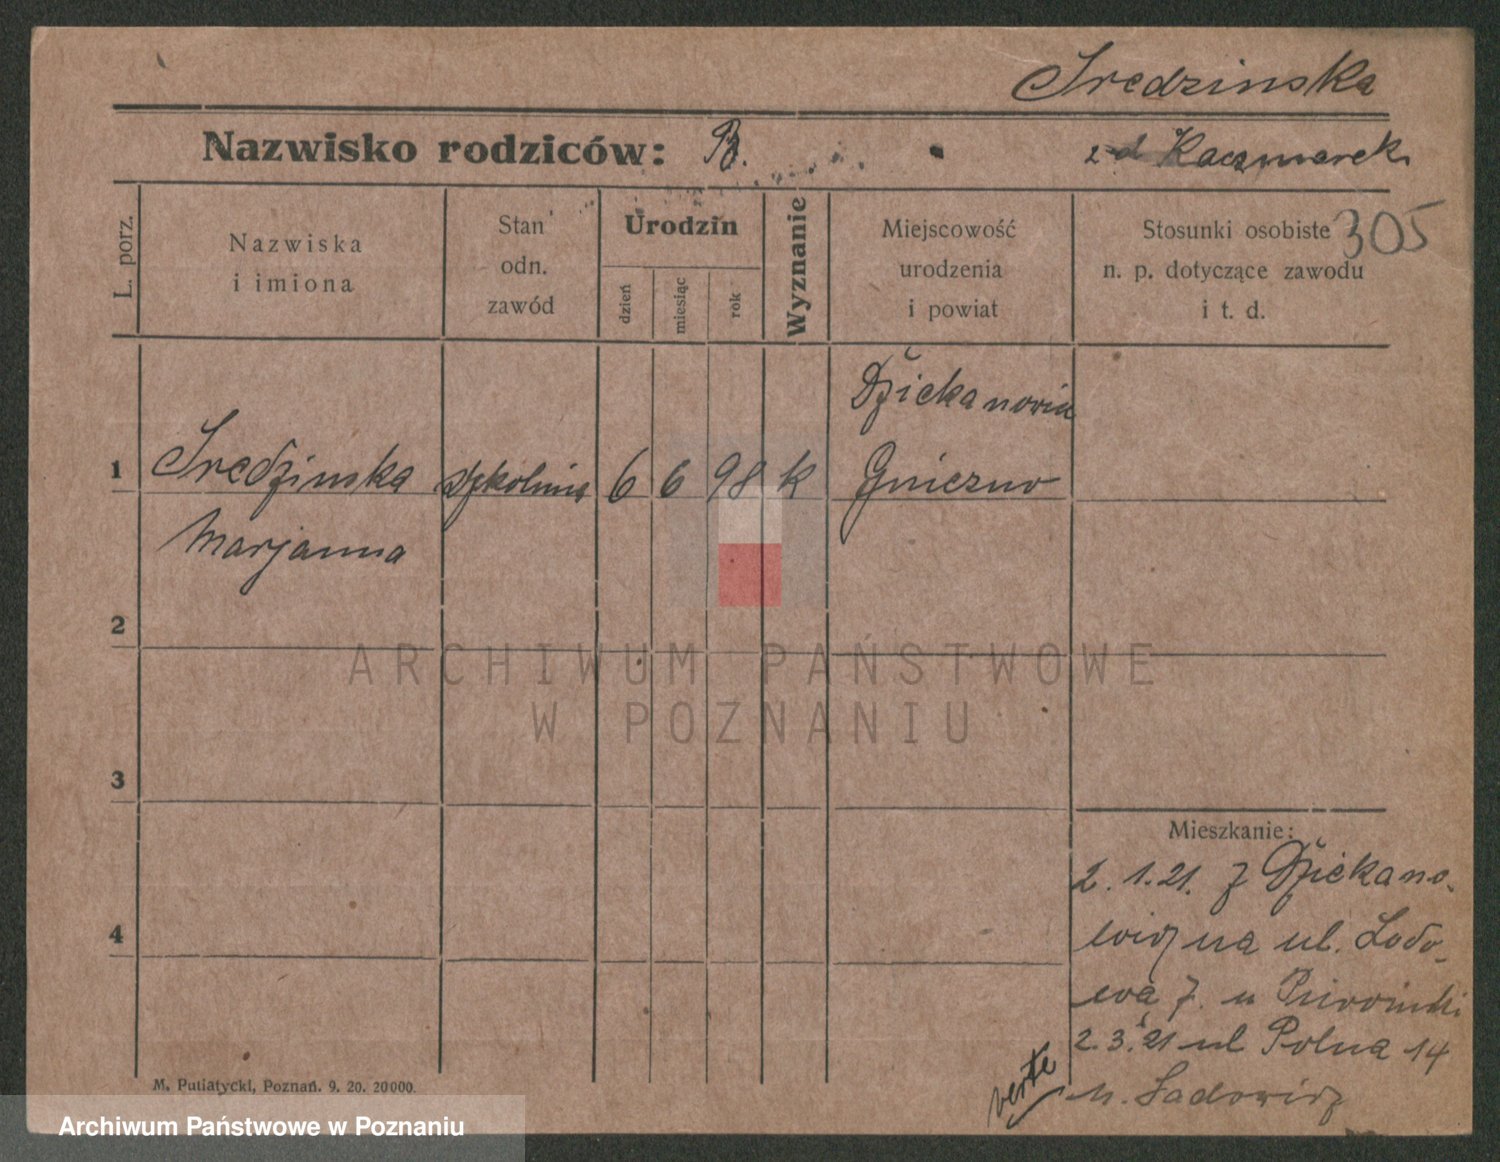 Sredzinska
Nazwisko rodziców: B.
zd Kaczmarek
305
L. porz.
Nazwiska
i imiona
Stan
odn.
zawód
Urodzin
dzień
miesiąc
rok
Wyznanie
Miejscowość
urodzenia
i powiat
Stosunki osobiste
n. p. dotyczące zawodu
i t. d.
Dziekanowic
1 Sredzinska 6 6 98 k Gniezno
Marjanna
2
ARCHIWUM PAŃSTWOWE
W POZNANIU
3
Mieszkanie:
2.1.21. z Dziekano-
4
wic na ul. Lodo-
wą 7. u
2.3.21 ul Polna 14
verte
u. Sadowicz
M. Putiatycki, Poznań. 9. 20. 20000.
Archiwum Państwowe w Poznaniu